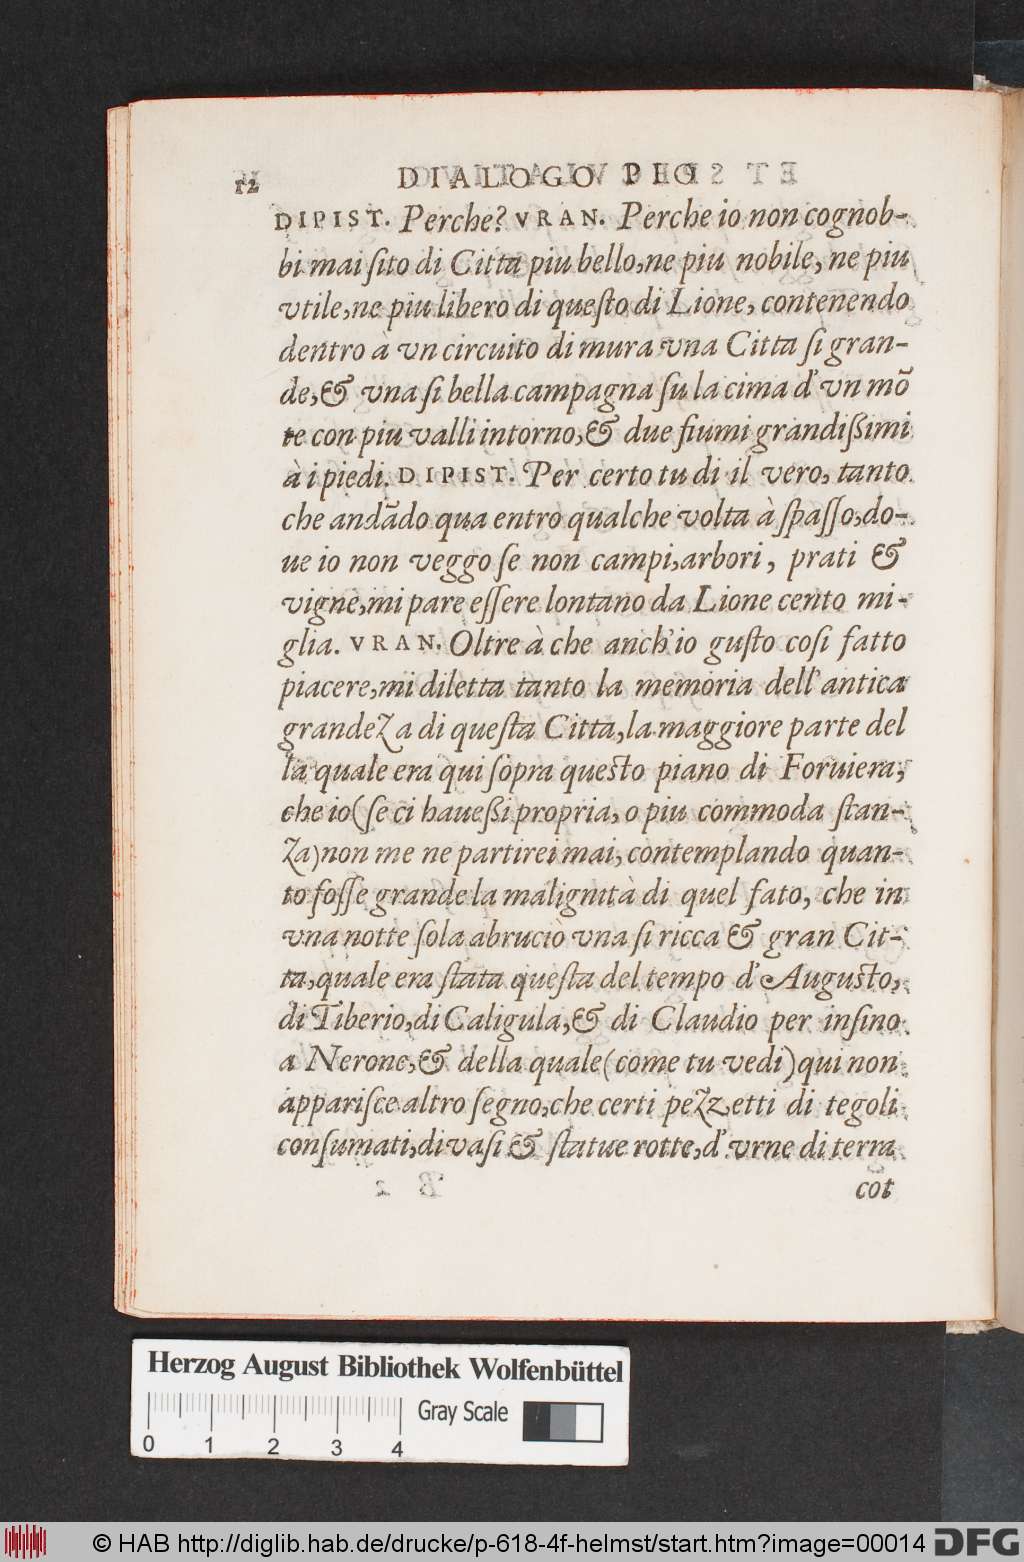 12 DIALOGO PIO
DIPIST. Perche? VRAN. Perche io non cognob-
bi mai ſito di Citta piu bello, ne piu nobile, ne piu
vtile, ne piu libero di queſto di Lione, contenendo
dentro à vn circuito di mura vna Citta ſi gran-
de, & vna ſi bella campagna ſu la cima d'vn mõ
te con piu valli intorno, & due fiumi grandißimi
à i piedi. DIPIST. Per certo tu di il vero, tanto
che andãdo qua entro qualche volta à ſpaſſo, do-
ue io non veggo ſe non campi, arbori, prati &
vigne, mi pare eſſere lontano da Lione cento mi-
glia. VRAN. Oltre à che anch'io guſto coſi fatto
piacere, mi diletta tanto la memoria dell'antica
grandeza di queſta Citta, la maggiore parte del
la quale era qui ſopra queſto piano di Foruiera,
che io (ſe ci haueßi propria, o piu commoda ſtan-
za) non me ne partirei mai, contemplando quan-
to foſſe grande la malignità di quel fato, che in
vna notte ſola abruciò vna ſi ricca & gran Cit-
ta, quale era ſtata queſta del tempo d'Auguſto,
di Tiberio, di Caligula, & di Claudio per inſino
a Nerone, & della quale (come tu vedi) qui non
appariſce altro ſegno, che certi pezzetti di tegoli
conſumati, di vaſi & ſtatue rotte, d'vrne di terra
cot
Herzog August Bibliothek Wolfenbüttel
Gray Scale
0 1 2 3 4
© HAB http://diglib.hab.de/drucke/p-618-4f-helmst/start.htm?image=00014 DFG